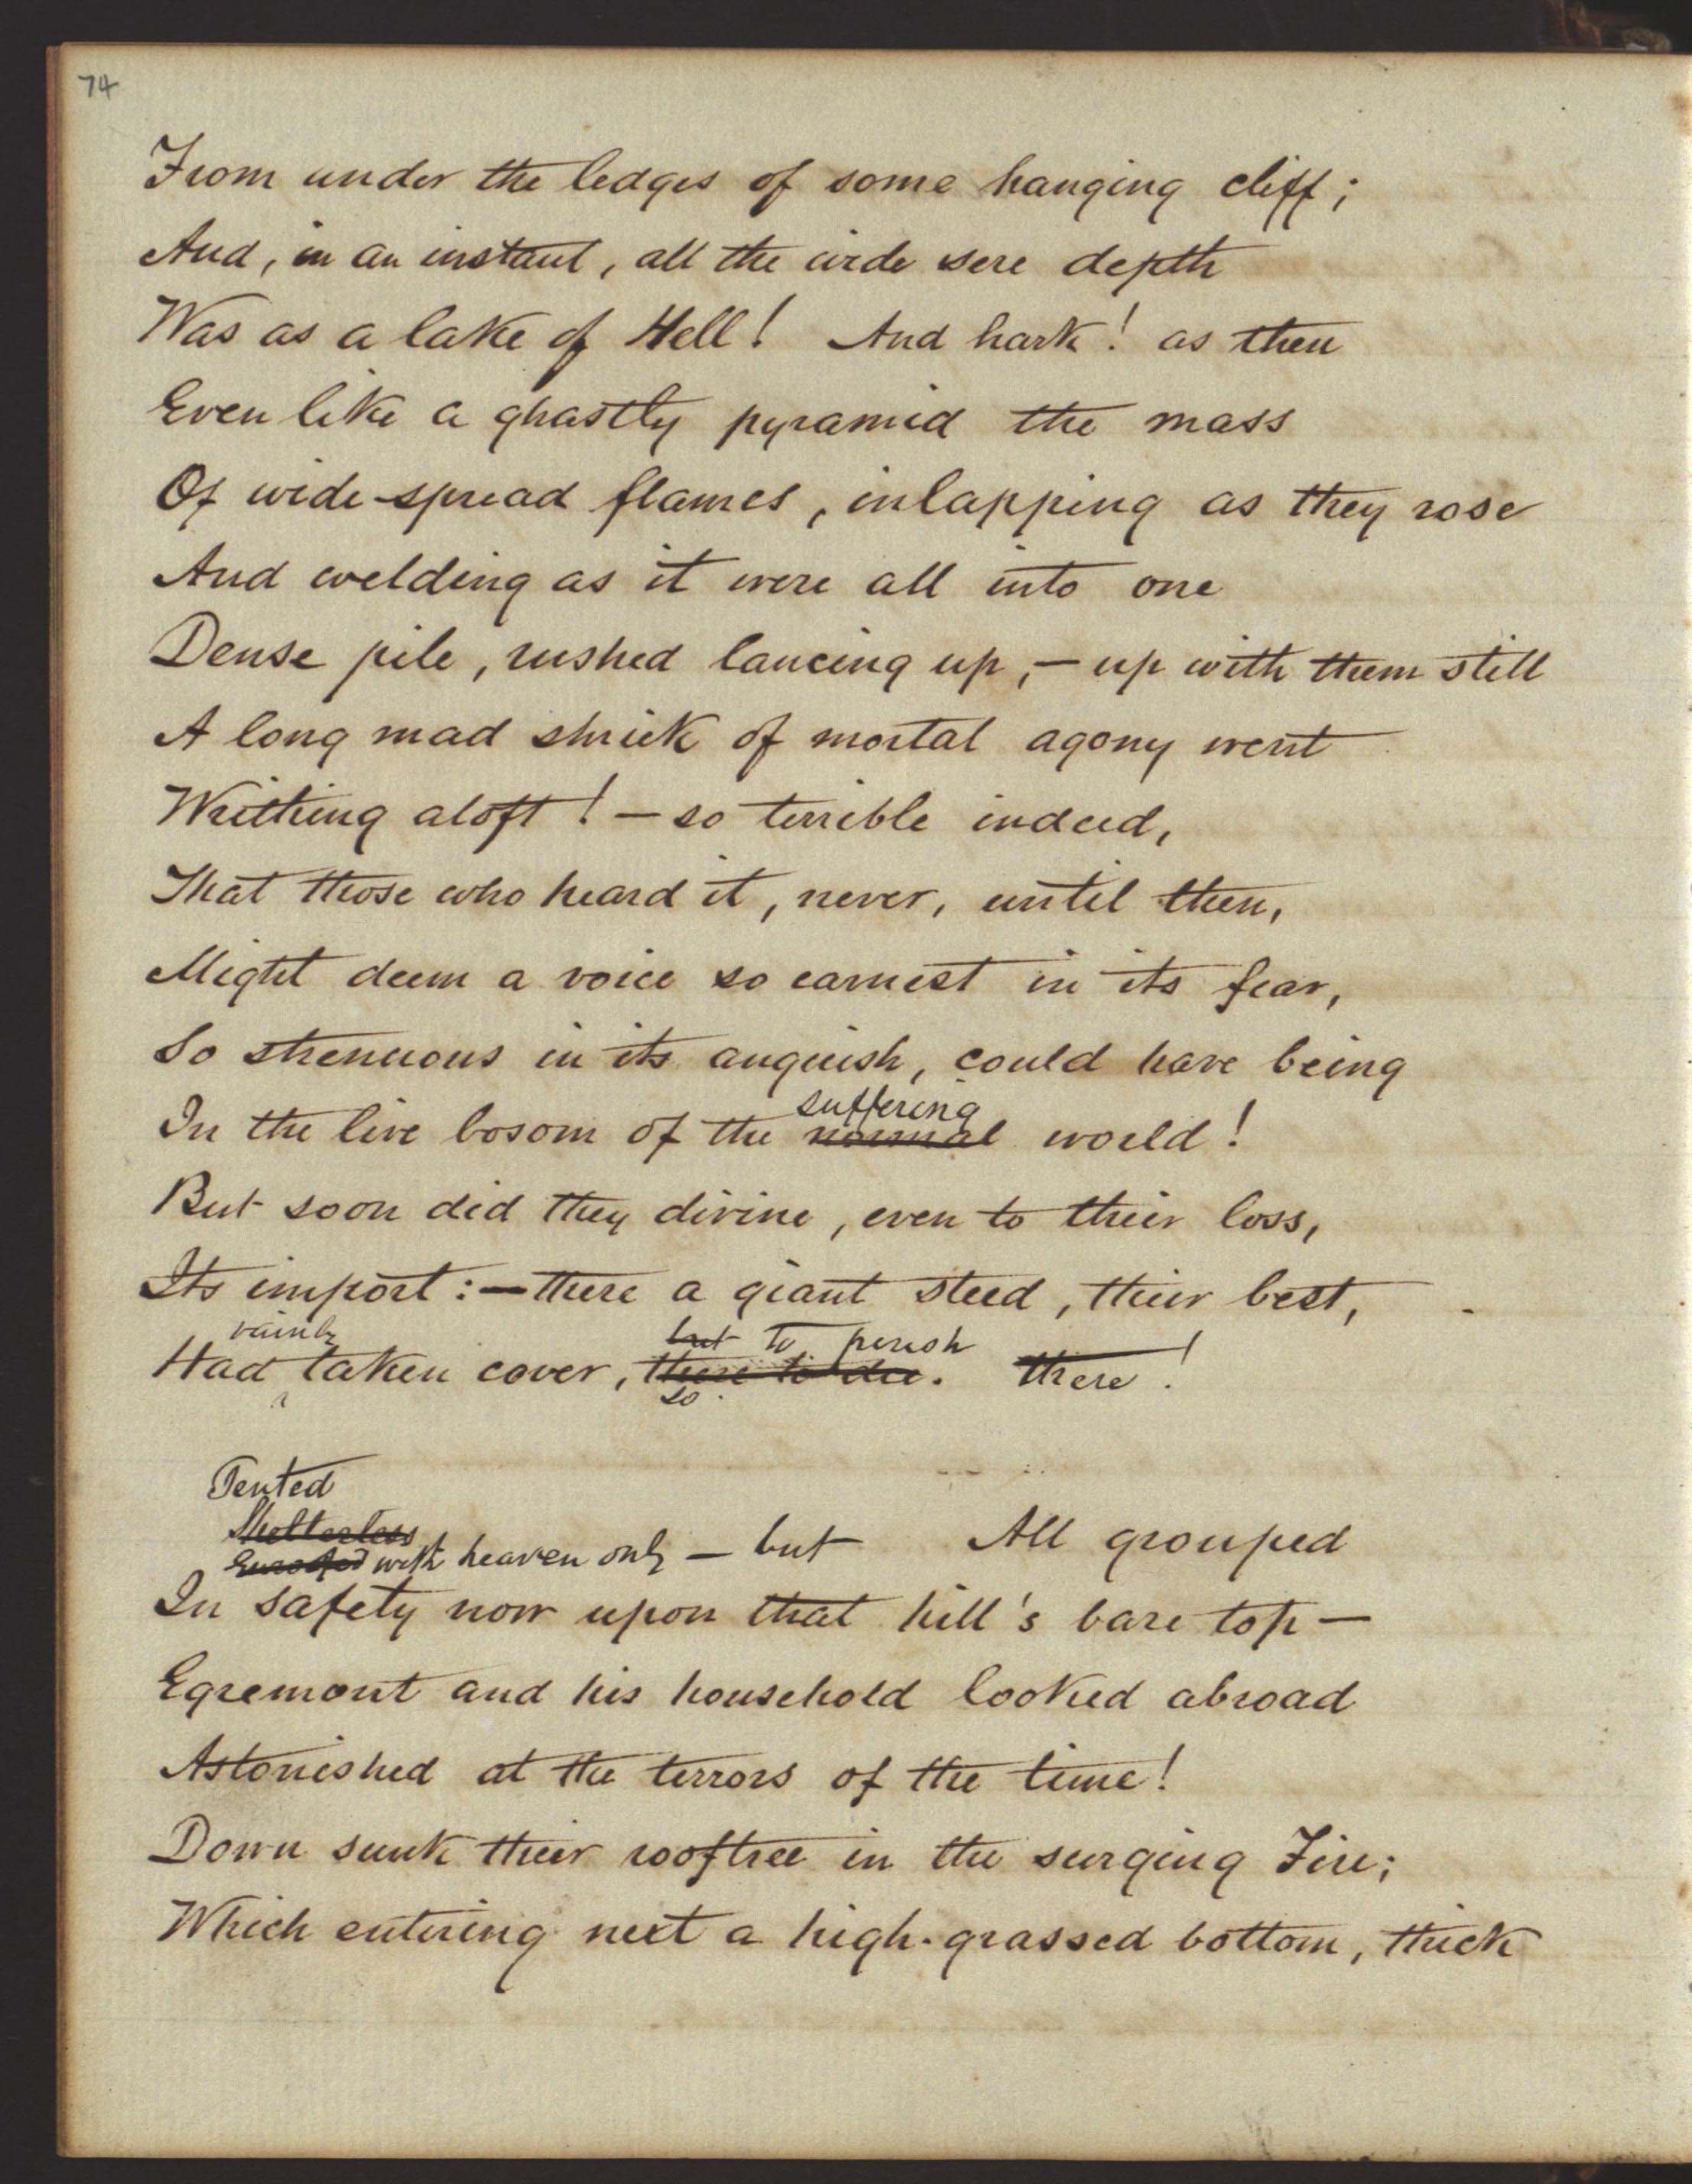 74
From under the ledges of some hanging cliff;
And, in an instant, all the wide sere depth
Was as a lake of Hell! And hark! as then
Even like a ghastly pyramid the mass
Of wide-spread flames, inlapping as they rose
And welding as it were all into one
Dense pile, rushed lancing up, — up with them still
A long mad shriek of mortal agony went
Writhing aloft! — so terrible indeed,
That those who heard it, never, until then,
Might deem a voice so earnest in its fear,
So strenuous in its anguish, could have being
suffering
In the live bosom of the normal world!
But soon did they divine, even to their loss,
Its import: — there a giant steed, their best,
vainly but to perish
Had taken cover, there to die. there!
so
Tented
Shelterless All grouped
with heaven only — but
In safety now upon that hill's bare top —
Egremont and his household looked abroad
Astonished at the terrors of the time!
Down sunk their rooftree in the surging Fire;
Which entering next a high-grassed bottom, thick